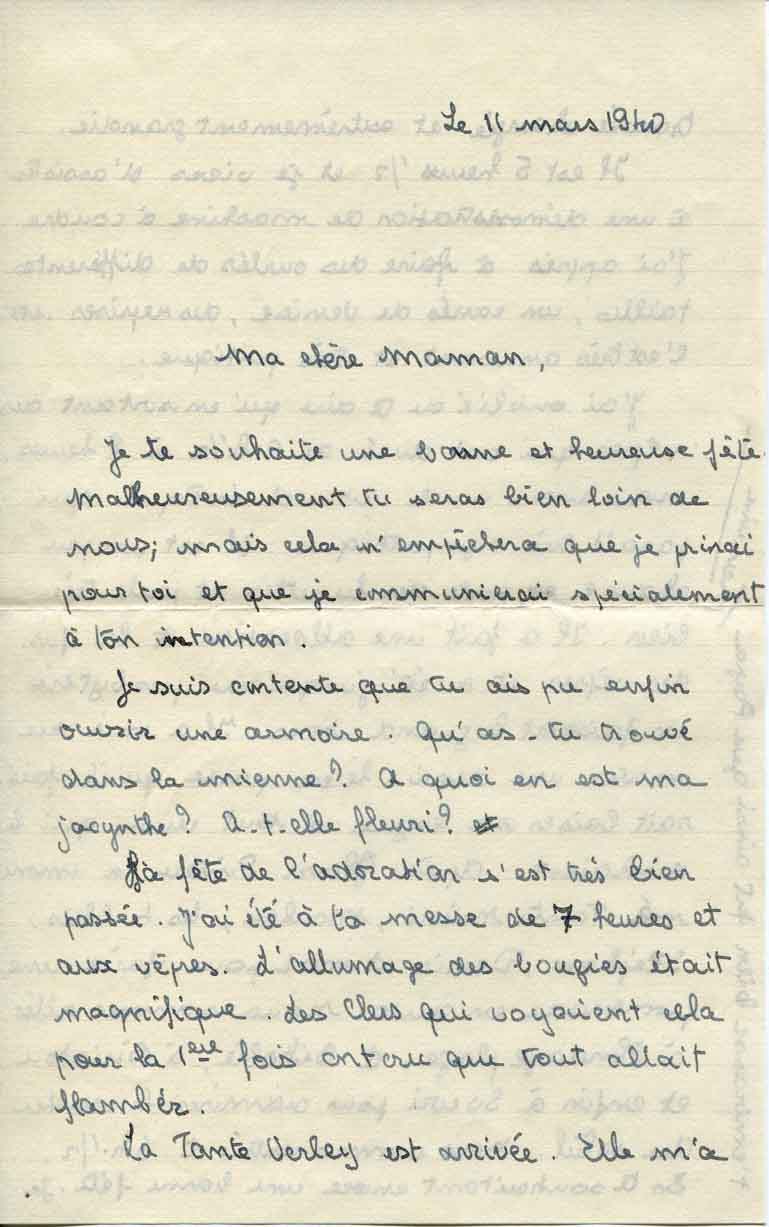 Le 11 mars 1940
Ma chère Maman,
Je te souhaite une bonne et heureuse fête.
Malheureusement tu seras bien loin de
nous; mais cela n'empêchera que je prirai
pour toi et que je communierai spécialement
à ton intention.
Je suis contente que tu ais pu enfin
ouvrir une armoire. Qu'as-tu trouvé
dans la mienne? A quoi en est ma
jacynthe? A-t-elle fleuri?
La fête de l'adoration s'est très bien
passée. J'ai été à la messe de 7 heures et
aux vêpres. L'allumage des bougies était
magnifique. Les qui voyaient cela
pour la 1ère fois ont cru que tout allait
flambér.
La Tante Verley est arrivée. Elle m'a